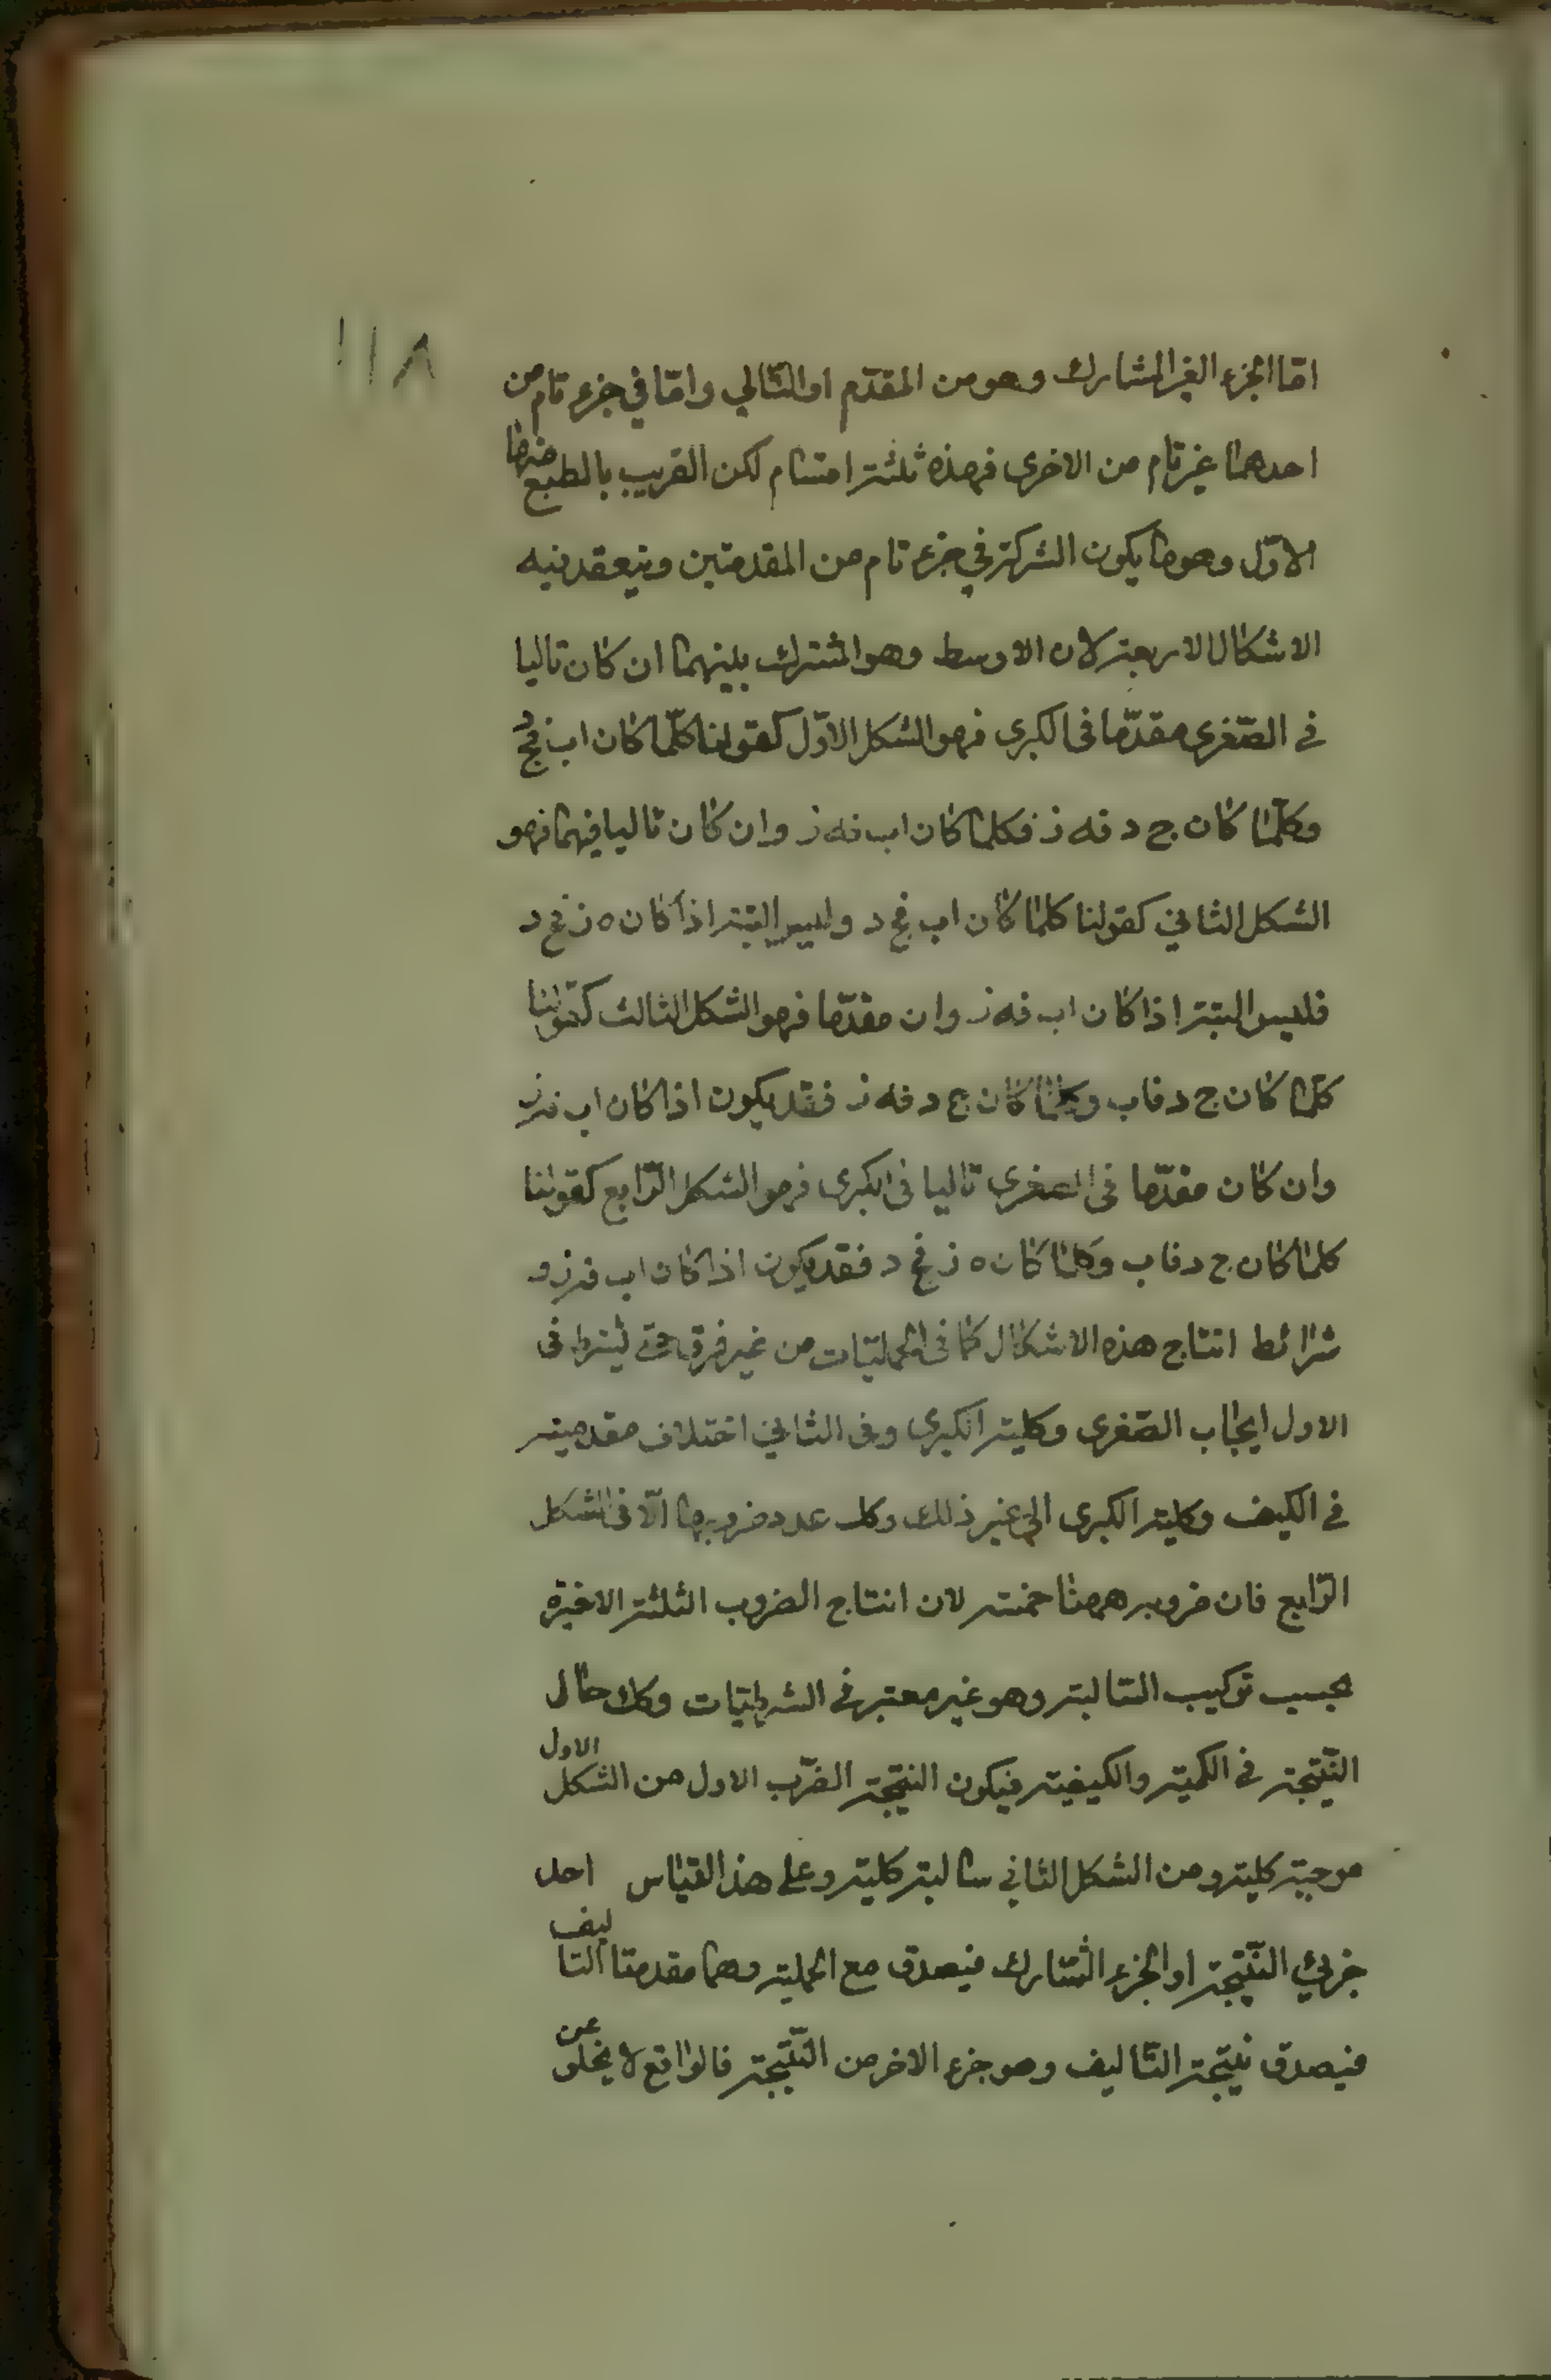 ١١٨
امّا الجزء الغير المشارك وهو من المقدّم او التّالي وامّا في جزء تام من
احدهما غير تام من الاخرى فهذه ثلثة اقسام لكن القريب بالطبع منها
الاوّل وهو ما يكون الشركة في جزء تام من المقدمتين وينعقد فيه
الاشكال الاربعة لان الاوسط وهو المشترك بينهما ان كان تاليا
في الصّغرى مقدّما في الكبرى فهو الشكل الاوّل كقولنا كلّما كان اب فج د
وكلّما كان ج د فه ز فكلما كان اب فه ز وان كان تاليا فيهما فهو
الشكل الثاني كقولنا كلما كان اب فج د وليس البتة اذا كان ه ز فج د
فليس البتة اذا كان اب فه ز وان مقدّما فهو الشكل الثالث كقولنا
كلما كان ج د فاب وكلما كان ج د فه ز فقد يكون اذا كان اب فه ز
وان كان مقدّما في الصغرى تاليا في الكبرى فهو الشكل الرّابع كقولنا
كلما كان ج د فاب وكلما كان ه ز فج د فقد يكون اذا كان اب فه ز و
شرائط انتاج هذه الاشكال كما في الحمليّات من غير فرق حتى يشترط في
الاول ايجاب الصّغرى وكلية الكبرى وفي الثاني اختلاف مقدميته
في الكيف وكلية الكبرى الى غير ذلك وكك عدد ضروبها الّا في الشكل
الرّابع فان ضروبه ههنا خمسة لان انتاج الضروب الثلثة الاخيرة
بحسب تركيب السّالبة وهو غير معتبر في الشرطيّات وكك حال
النّتيجة في الكمية والكيفية فيكون النتيجة الضّرب الاول من الشكل الاول
موجبة كلية ومن الشكل الثاني سالبة كلية وعلى هذا القياس احد
جزئي النّتيجة او الجزء المشارك فيصدق مع الحملية وهما مقدمتا التاليف
فيصدق نتيجة التّاليف وهو جزء الاخر من النّتيجة فالواقع لا يخلو عن